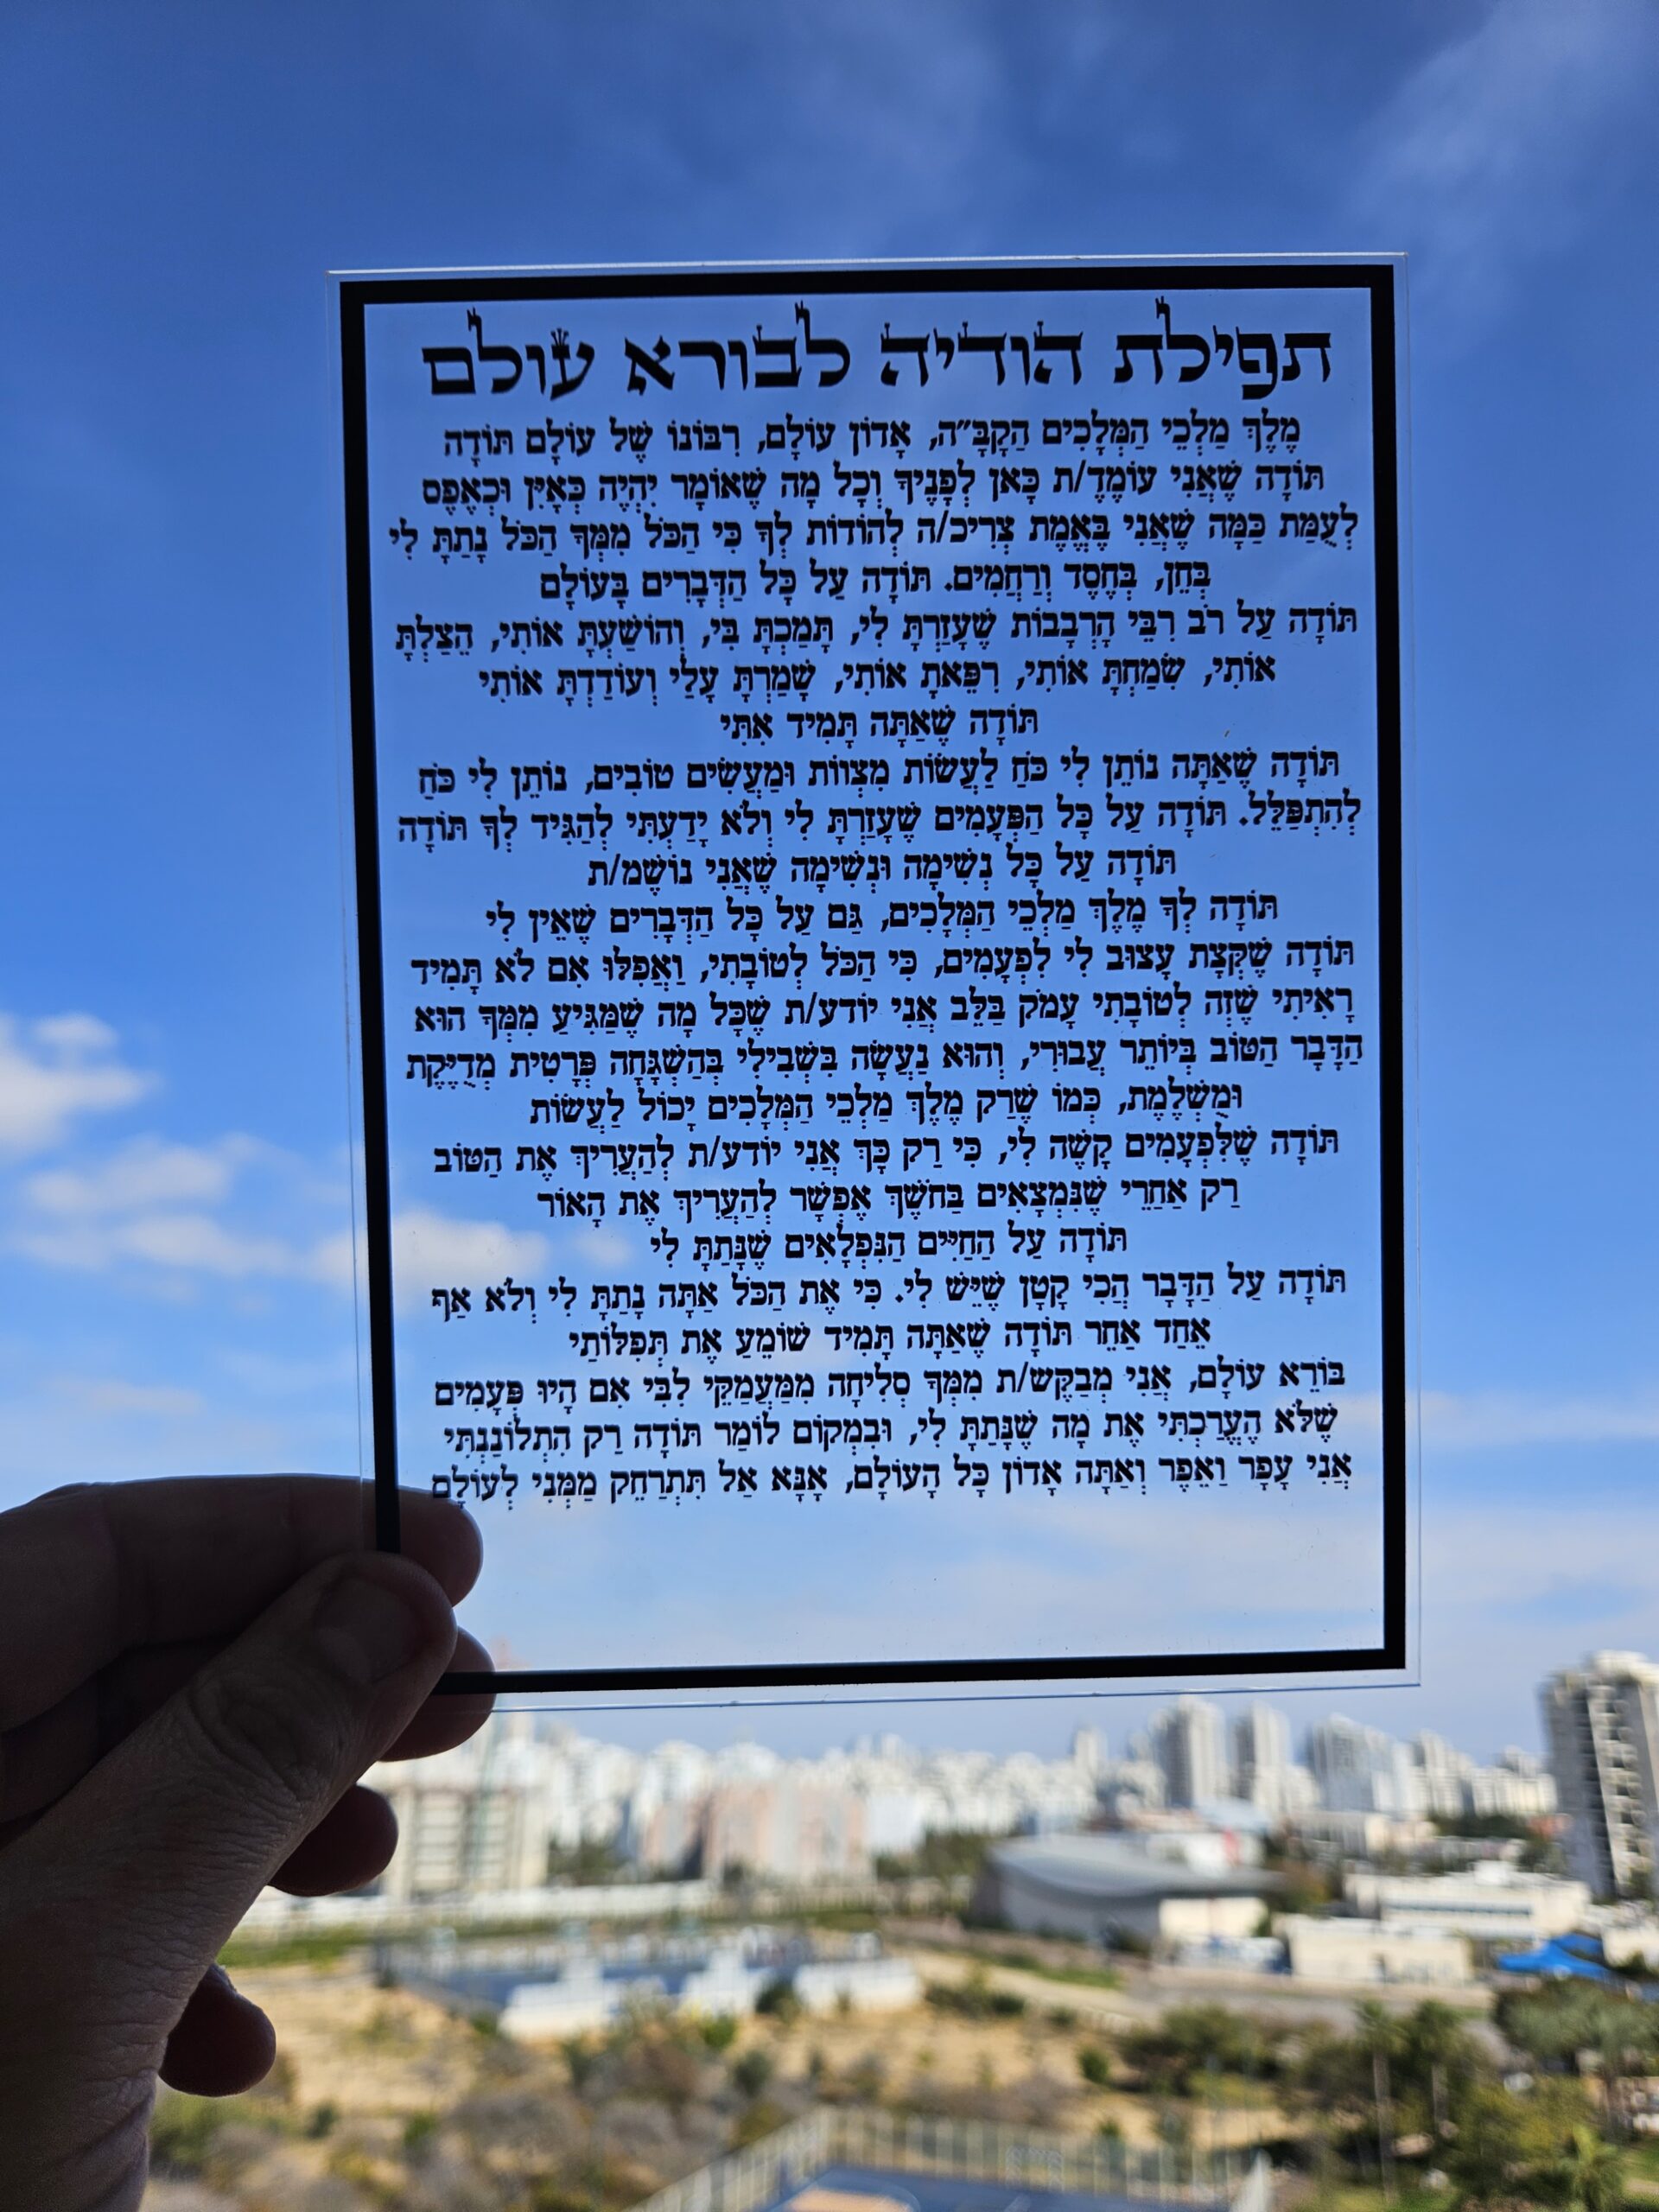 תפילת הודיה לבורא עולם
מֶלֶךְ מַלְכֵי הַמְּלָכִים הַקָּבָּ״ה, אָדוֹן עוֹלָם, רִבּוֹנוֹ שֶׁל עוֹלָם תּוֹדָה
תּוֹדָה שֶׁאֲנִי עוֹמֶדֶ/ת כָּאן לְפָנֶיךָ וְכָל מָה שֶׁאוֹמָר יִהְיֶה כְּאָיִן וּכְאֶפֶס
לְעֻמַּת כַּמָּה שֶׁאֲנִי בֶּאֱמֶת צְרִיכ/ה לְהוֹדוֹת לְךָ כִּי הַכֹּל מִמְּךָ הַכֹּל נָתַתָּ לִי
בְּחֵן, בְּחֶסֶד וְרַחֲמִים. תּוֹדָה עַל כָּל הַדְּבָרִים בָּעוֹלָם
תּוֹדָה עַל רֹב רִבֵּי הָרְבָבוֹת שֶׁעָזַרְתָּ לִי, תָּמַכְתָּ בִּי, וְהוֹשַׁעְתָּ אוֹתִי, הִצַּלְתָּ
אוֹתִי, שִׂמַּחְתָּ אוֹתִי, רִפֵּאתָ אוֹתִי, שָׁמַרְתָּ עָלַי וְעוֹדַדְתָּ אוֹתִי
תּוֹדָה שֶׁאַתָּה תָּמִיד אִתִּי
תּוֹדָה שֶׁאַתָּה נוֹתֵן לִי כֹּחַ לַעֲשׂוֹת מִצְווֹת וּמַעֲשִׂים טוֹבִים, נוֹתֵן לִי כֹּחַ
לְהִתְפַּלֵּל. תּוֹדָה עַל כָּל הַפְּעָמִים שֶׁעָזַרְתָּ לִי וְלֹא יָדַעְתִּי לְהַגִּיד לְךָ תּוֹדָה
תּוֹדָה עַל כָּל נְשִׁימָה וּנְשִׁימָה שֶׁאֲנִי נוֹשֶׁמ/ת
תּוֹדָה לְךָ מֶלֶךְ מַלְכֵי הַמְּלָכִים, גַּם עַל כָּל הַדְּבָרִים שֶׁאֵין לִי
תּוֹדָה שֶׁקְּצָת עָצוּב לִי לִפְעָמִים, כִּי הַכֹּל לְטוֹבָתִי, וַאֲפִלּוּ אִם לֹא תָּמִיד
רָאִיתִי שֶׁזֶּה לְטוֹבָתִי עָמֹק בַּלֵּב אֲנִי יוֹדע/ת שֶׁכָּל מָה שֶׁמַּגִּיעַ מִמְּךָ הוּא
הַדָּבָר הַטּוֹב בְּיוֹתֵר עֲבוּרִי, וְהוּא נַעֲשָׂה בִּשְׁבִילִי בְּהַשְׁגָּחָה פְּרָטִית מְדֻיֶּקֶת
וּמֻשְׁלֶמֶת, כְּמוֹ שֶׁרַק מֶלֶךְ מַלְכֵי הַמְּלָכִים יָכוֹל לַעֲשׂוֹת
תּוֹדָה שֶׁלִּפְעָמִים קָשֶׁה לִי, כִּי רַק כָּךְ אֲנִי יוֹדע/ת לְהַעֲרִיךְ אֶת הַטּוֹב
רַק אַחֲרֵי שֶׁנִּמְצָאִים בַּחֹשֶׁךְ אֶפְשָׁר לְהַעֲרִיךְ אֶת הָאוֹר
תּוֹדָה עַל הַחַיִּים הַנִּפְלָאִים שֶׁנָּתַתָּ לִי
תּוֹדָה עַל הַדָּבָר הֲכִי קָטָן שֶׁיֵּשׁ לִי. כִּי אֶת הַכֹּל אַתָּה נָתַתָּ לִי וְלֹא אַף
אֶחָד אַחֵר תּוֹדָה שֶׁאַתָּה תָּמִיד שׁוֹמֵעַ אֶת תְּפִלּוֹתַי
בּוֹרֵא עוֹלָם, אֲנִי מְבַקֶּש/ת מִמְּךָ סְלִיחָה מִמַּעֲמַקֵּי לִבִּי אִם הָיוּ פְּעָמִים
שֶׁלֹּא הֶעֱרַכְתִּי אֶת מָה שֶׁנָּתַתָּ לִי, וּבִמְקוֹם לוֹמַר תּוֹדָה רַק הִתְלוֹנַנְתִּי
אֲנִי עָפָר וָאֵפֶר וְאַתָּה אָדוֹן כָּל הָעוֹלָם, אָנָּא אַל תִּתְרַחֵק מִמֶּנִּי לְעוֹלָם